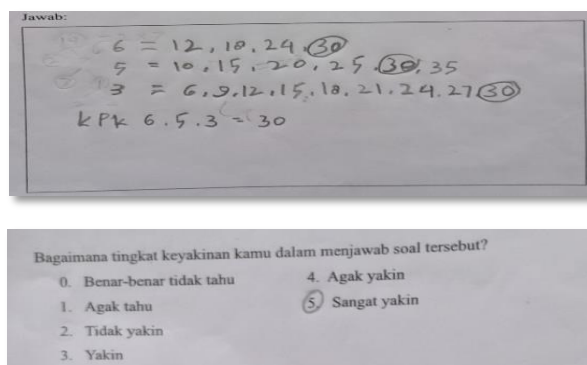 Jawab:
6 = 12, 18, 24, 30
5 = 10, 15, 20, 25, 30, 35
3 = 6, 9, 12, 15, 18, 21, 24, 27, 30
KPK 6.5.3 = 30
Bagaimana tingkat keyakinan kamu dalam menjawab soal tersebut?
0. Benar-benar tidak tahu
1. Agak tahu
2. Tidak yakin
3. Yakin
4. Agak yakin
5. Sangat yakin